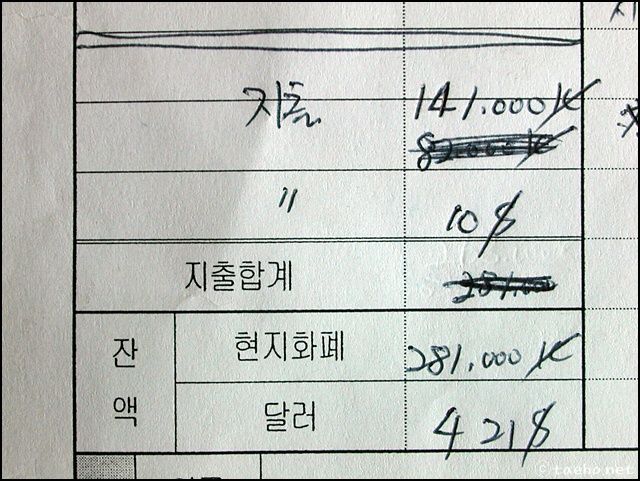 지출 141.000K
82.000K
〃 10$
지출합계 281.00
잔액 현지화폐 281,000 K
달러 421$
© taeho.net